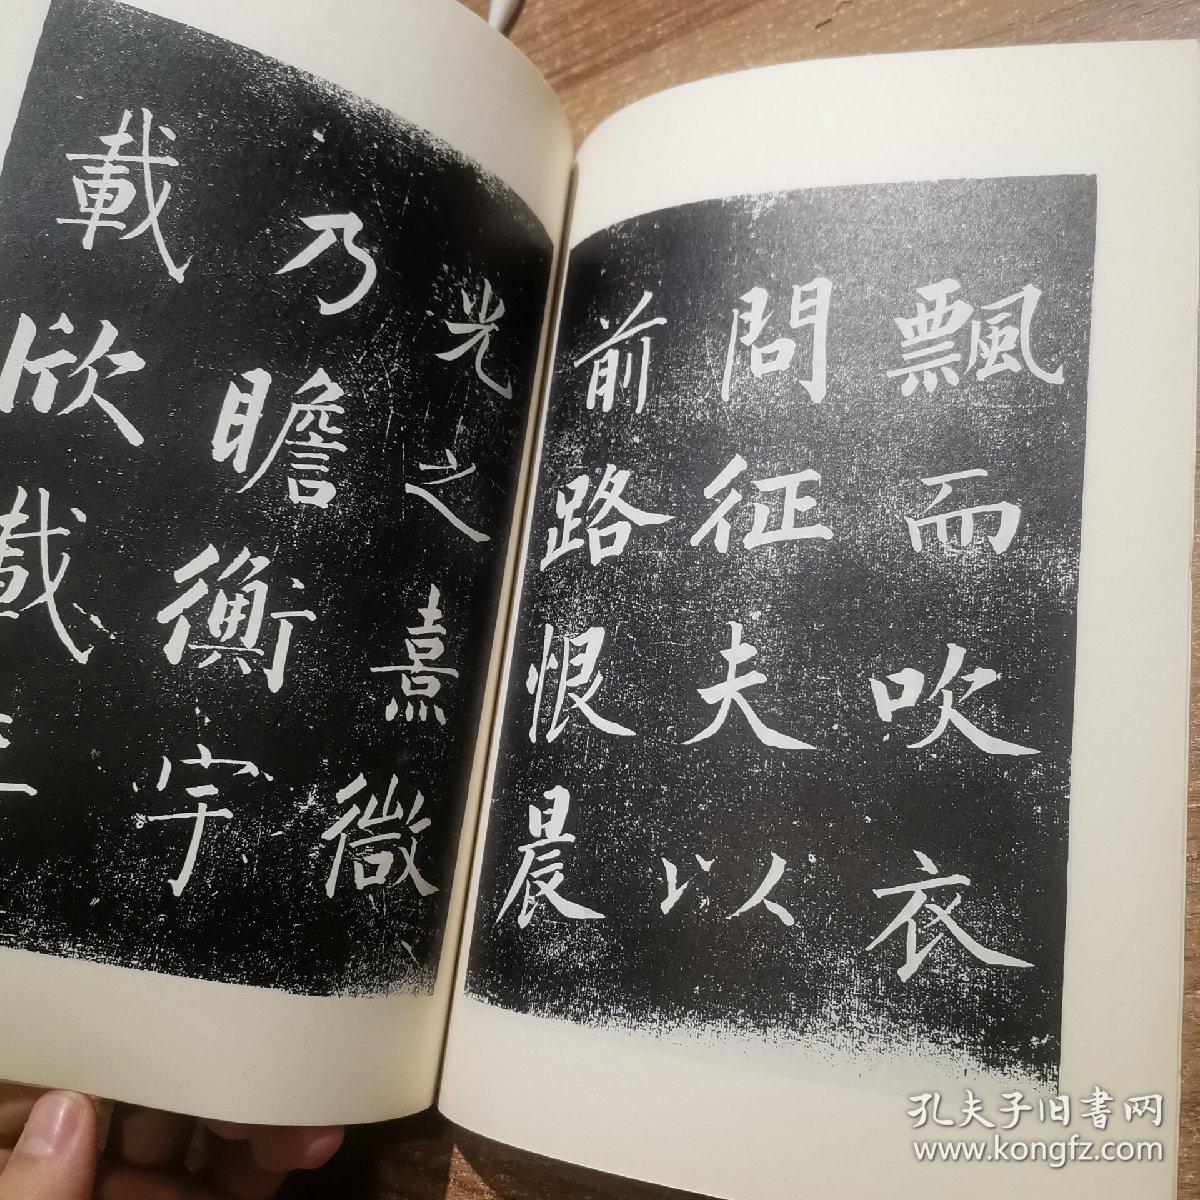 飄而吹衣
問征夫以
前路恨晨
光之熹微
乃瞻衡宇
載欣載
孔夫子旧書网
www.kongfz.com